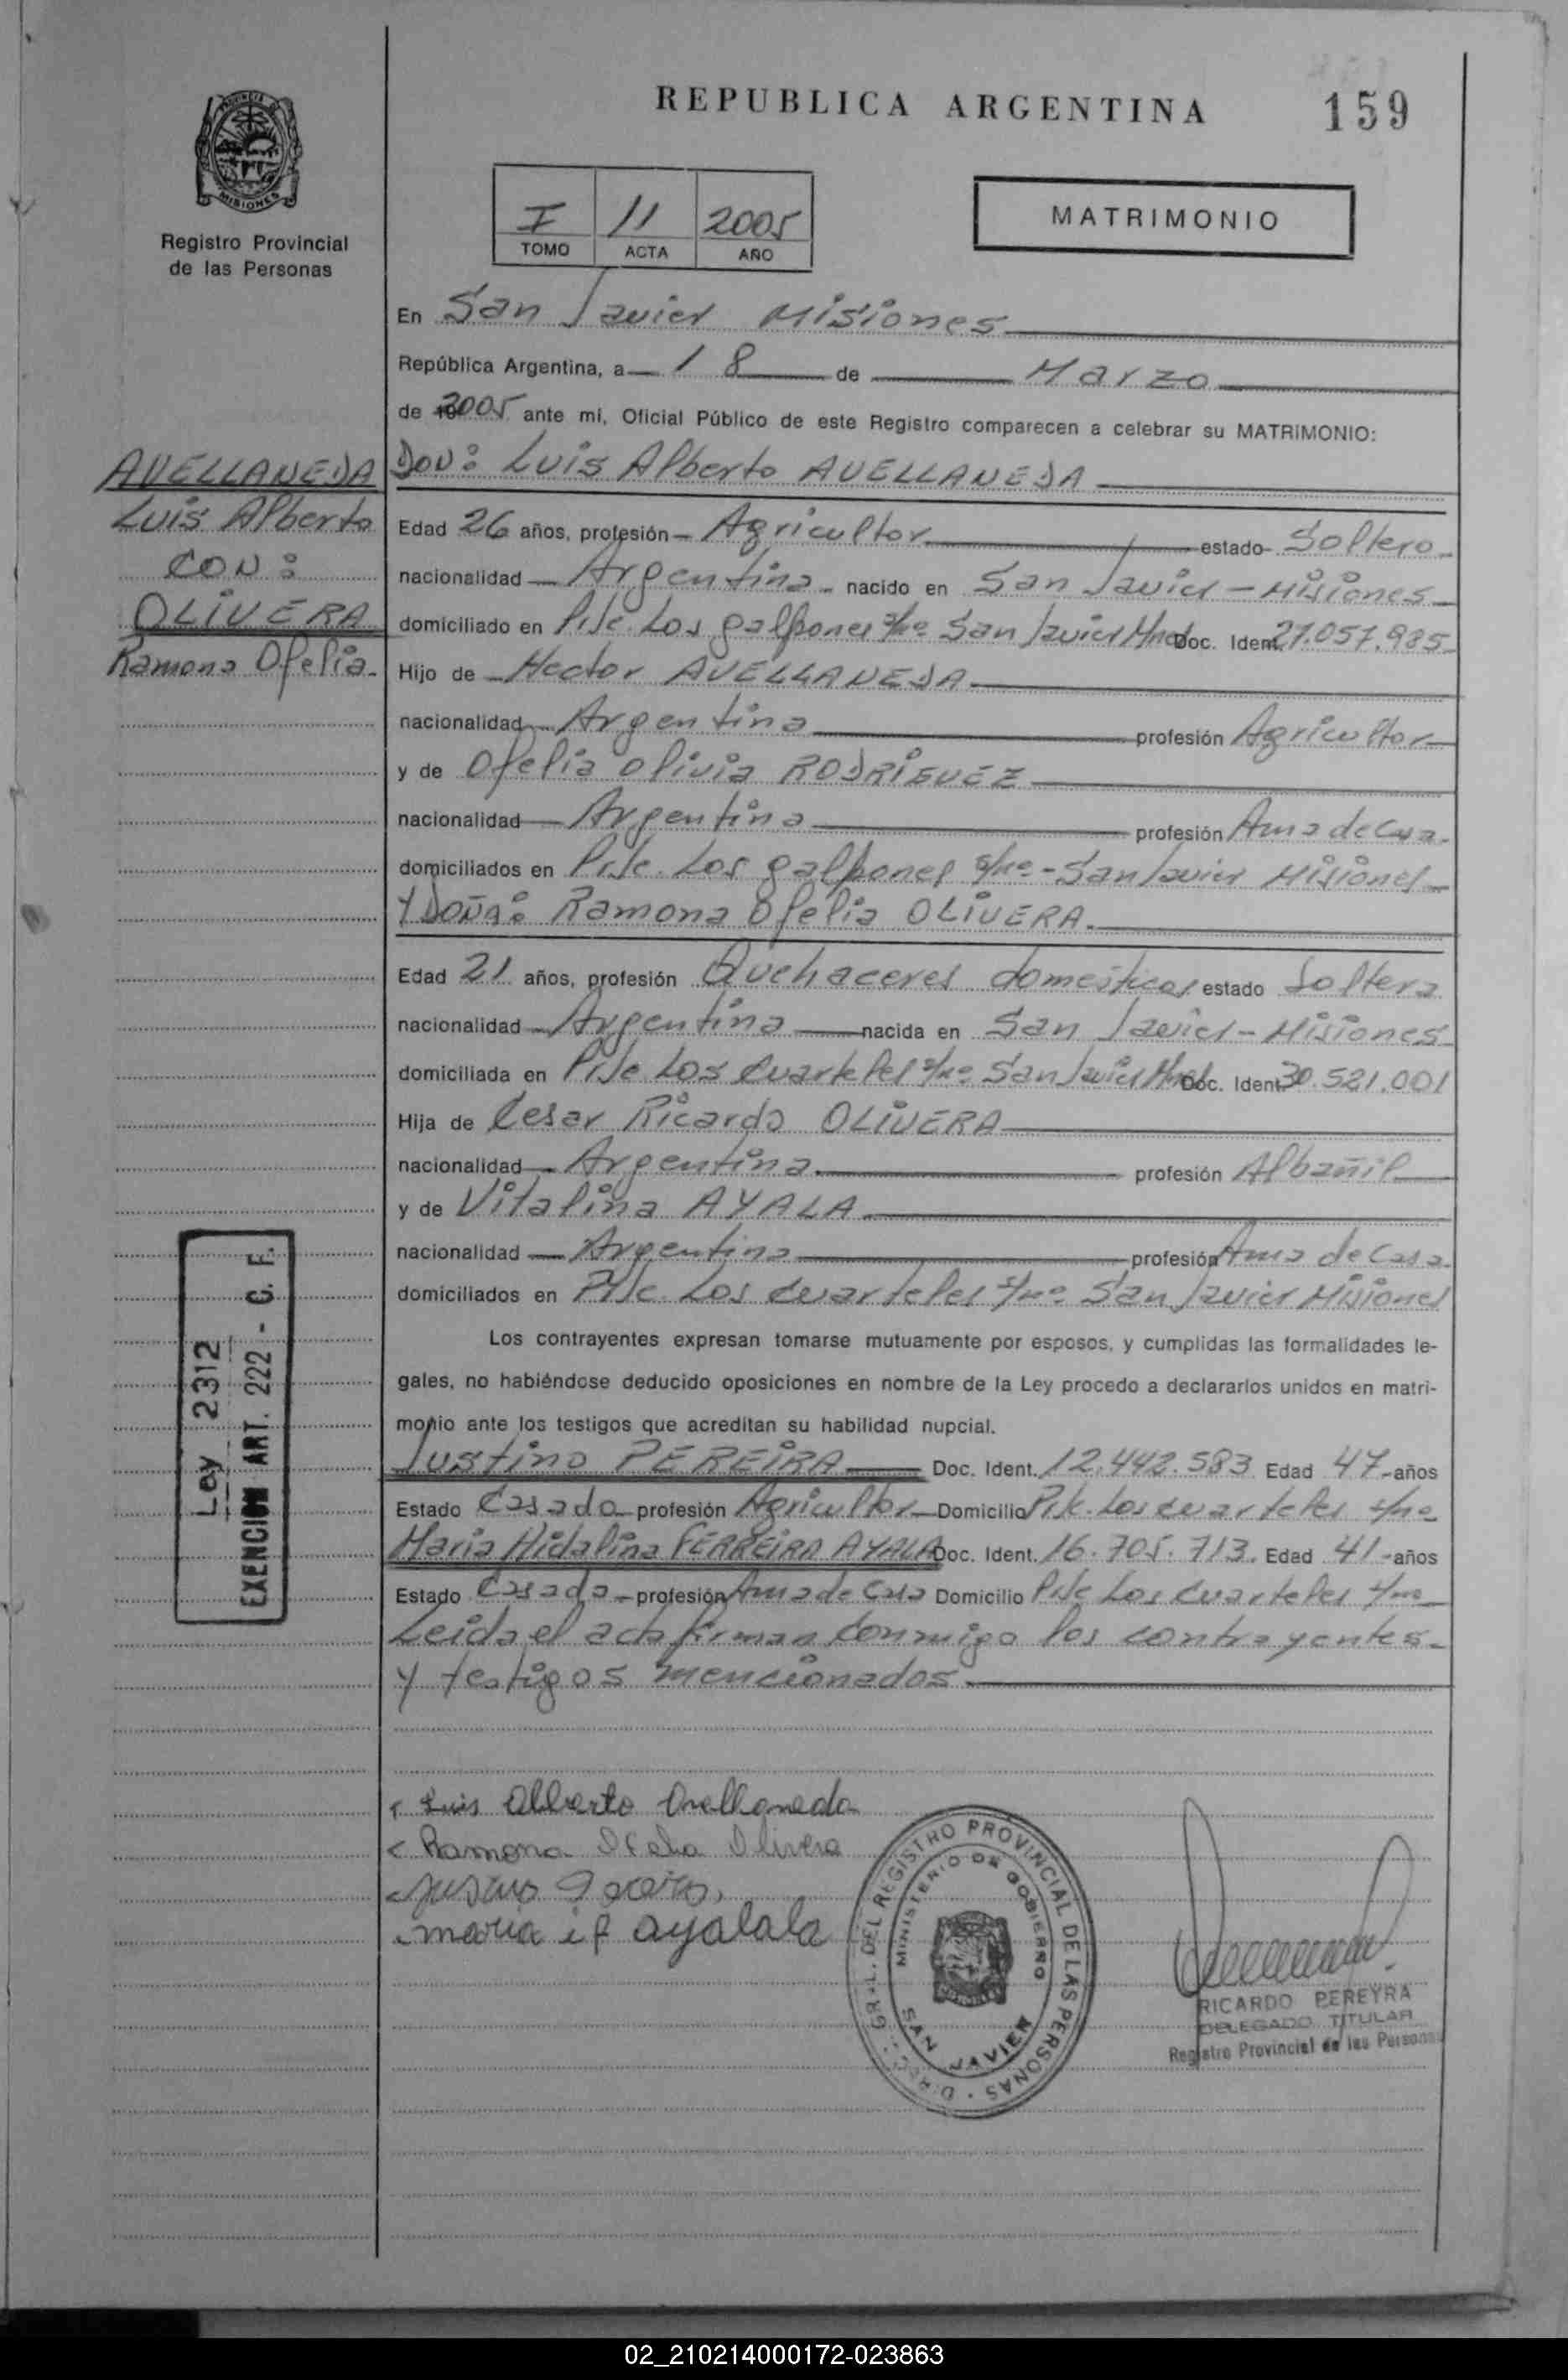 REPUBLICA ARGENTINA
159
PROVINCIA DE
MISIONES
Registro Provincial
de las Personas
I 11 2005
TOMO ACTA AÑO
MATRIMONIO
En San Javier Misiones
República Argentina, a 18 de Marzo
de 2005 ante mi, Oficial Público de este Registro comparecen a celebrar su MATRIMONIO:
AVELLANEDA
Luis Alberto
CON:
OLIVERA
Ramona Ofelia
Don: Luis Alberto AVELLANEDA
Edad 26 años, profesión Agricultor estado Soltero
nacionalidad Argentina nacido en San Javier - Misiones
domiciliado en Pje. Los galpones s/nº San Javier Mnes Doc. Ident. 27.057.985
Hijo de Hector AVELLANEDA
nacionalidad Argentina profesión Agricultor
y de Ofelia Olivia RODRIGUEZ
nacionalidad Argentina profesión Ama de Casa
domiciliados en Pje. Los galpones s/nº - San Javier Misiones
Y DOÑA: Ramona Ofelia OLIVERA
Edad 21 años, profesión Quehaceres domesticos estado Soltera
nacionalidad Argentina nacida en San Javier - Misiones
domiciliada en Pje Los Cuarteles s/nº San Javier Mnes Doc. Ident. 30.521.001
Hija de Cesar Ricardo OLIVERA
nacionalidad Argentina profesión Albañil
y de Vitalina AYALA
nacionalidad Argentina profesión Ama de Casa
domiciliados en Pje. Los Cuarteles s/nº San Javier Misiones
Los contrayentes expresan tomarse mutuamente por esposos, y cumplidas las formalidades le-
gales, no habiéndose deducido oposiciones en nombre de la Ley procedo a declararlos unidos en matri-
monio ante los testigos que acreditan su habilidad nupcial.
Justino PEREIRA Doc. Ident. 12.442.583 Edad 47 años
Estado Casado profesión Agricultor Domicilio Pje. Los cuarteles s/nº
Maria Hidalina FERREIRA AYALA Doc. Ident. 16.705.713. Edad 41 años
Estado Casada profesión Ama de Casa Domicilio Pje Los Cuarteles s/nº
Leida el acta firman conmigo los contrayentes
y testigos mencionados
Ley 2312
EXENCION ART. 222 - C. F.
Luis Alberto Avellaneda
Ramona Ofelia Olivera
maria if ayalala
DIREC. GRL. DEL REGISTRO PROVINCIAL DE LAS PERSONAS
MINISTERIO DE GOBIERNO
SAN JAVIER
RICARDO PEREYRA
DELEGADO TITULAR
Registro Provincial de las Personas
02_210214000172-023863